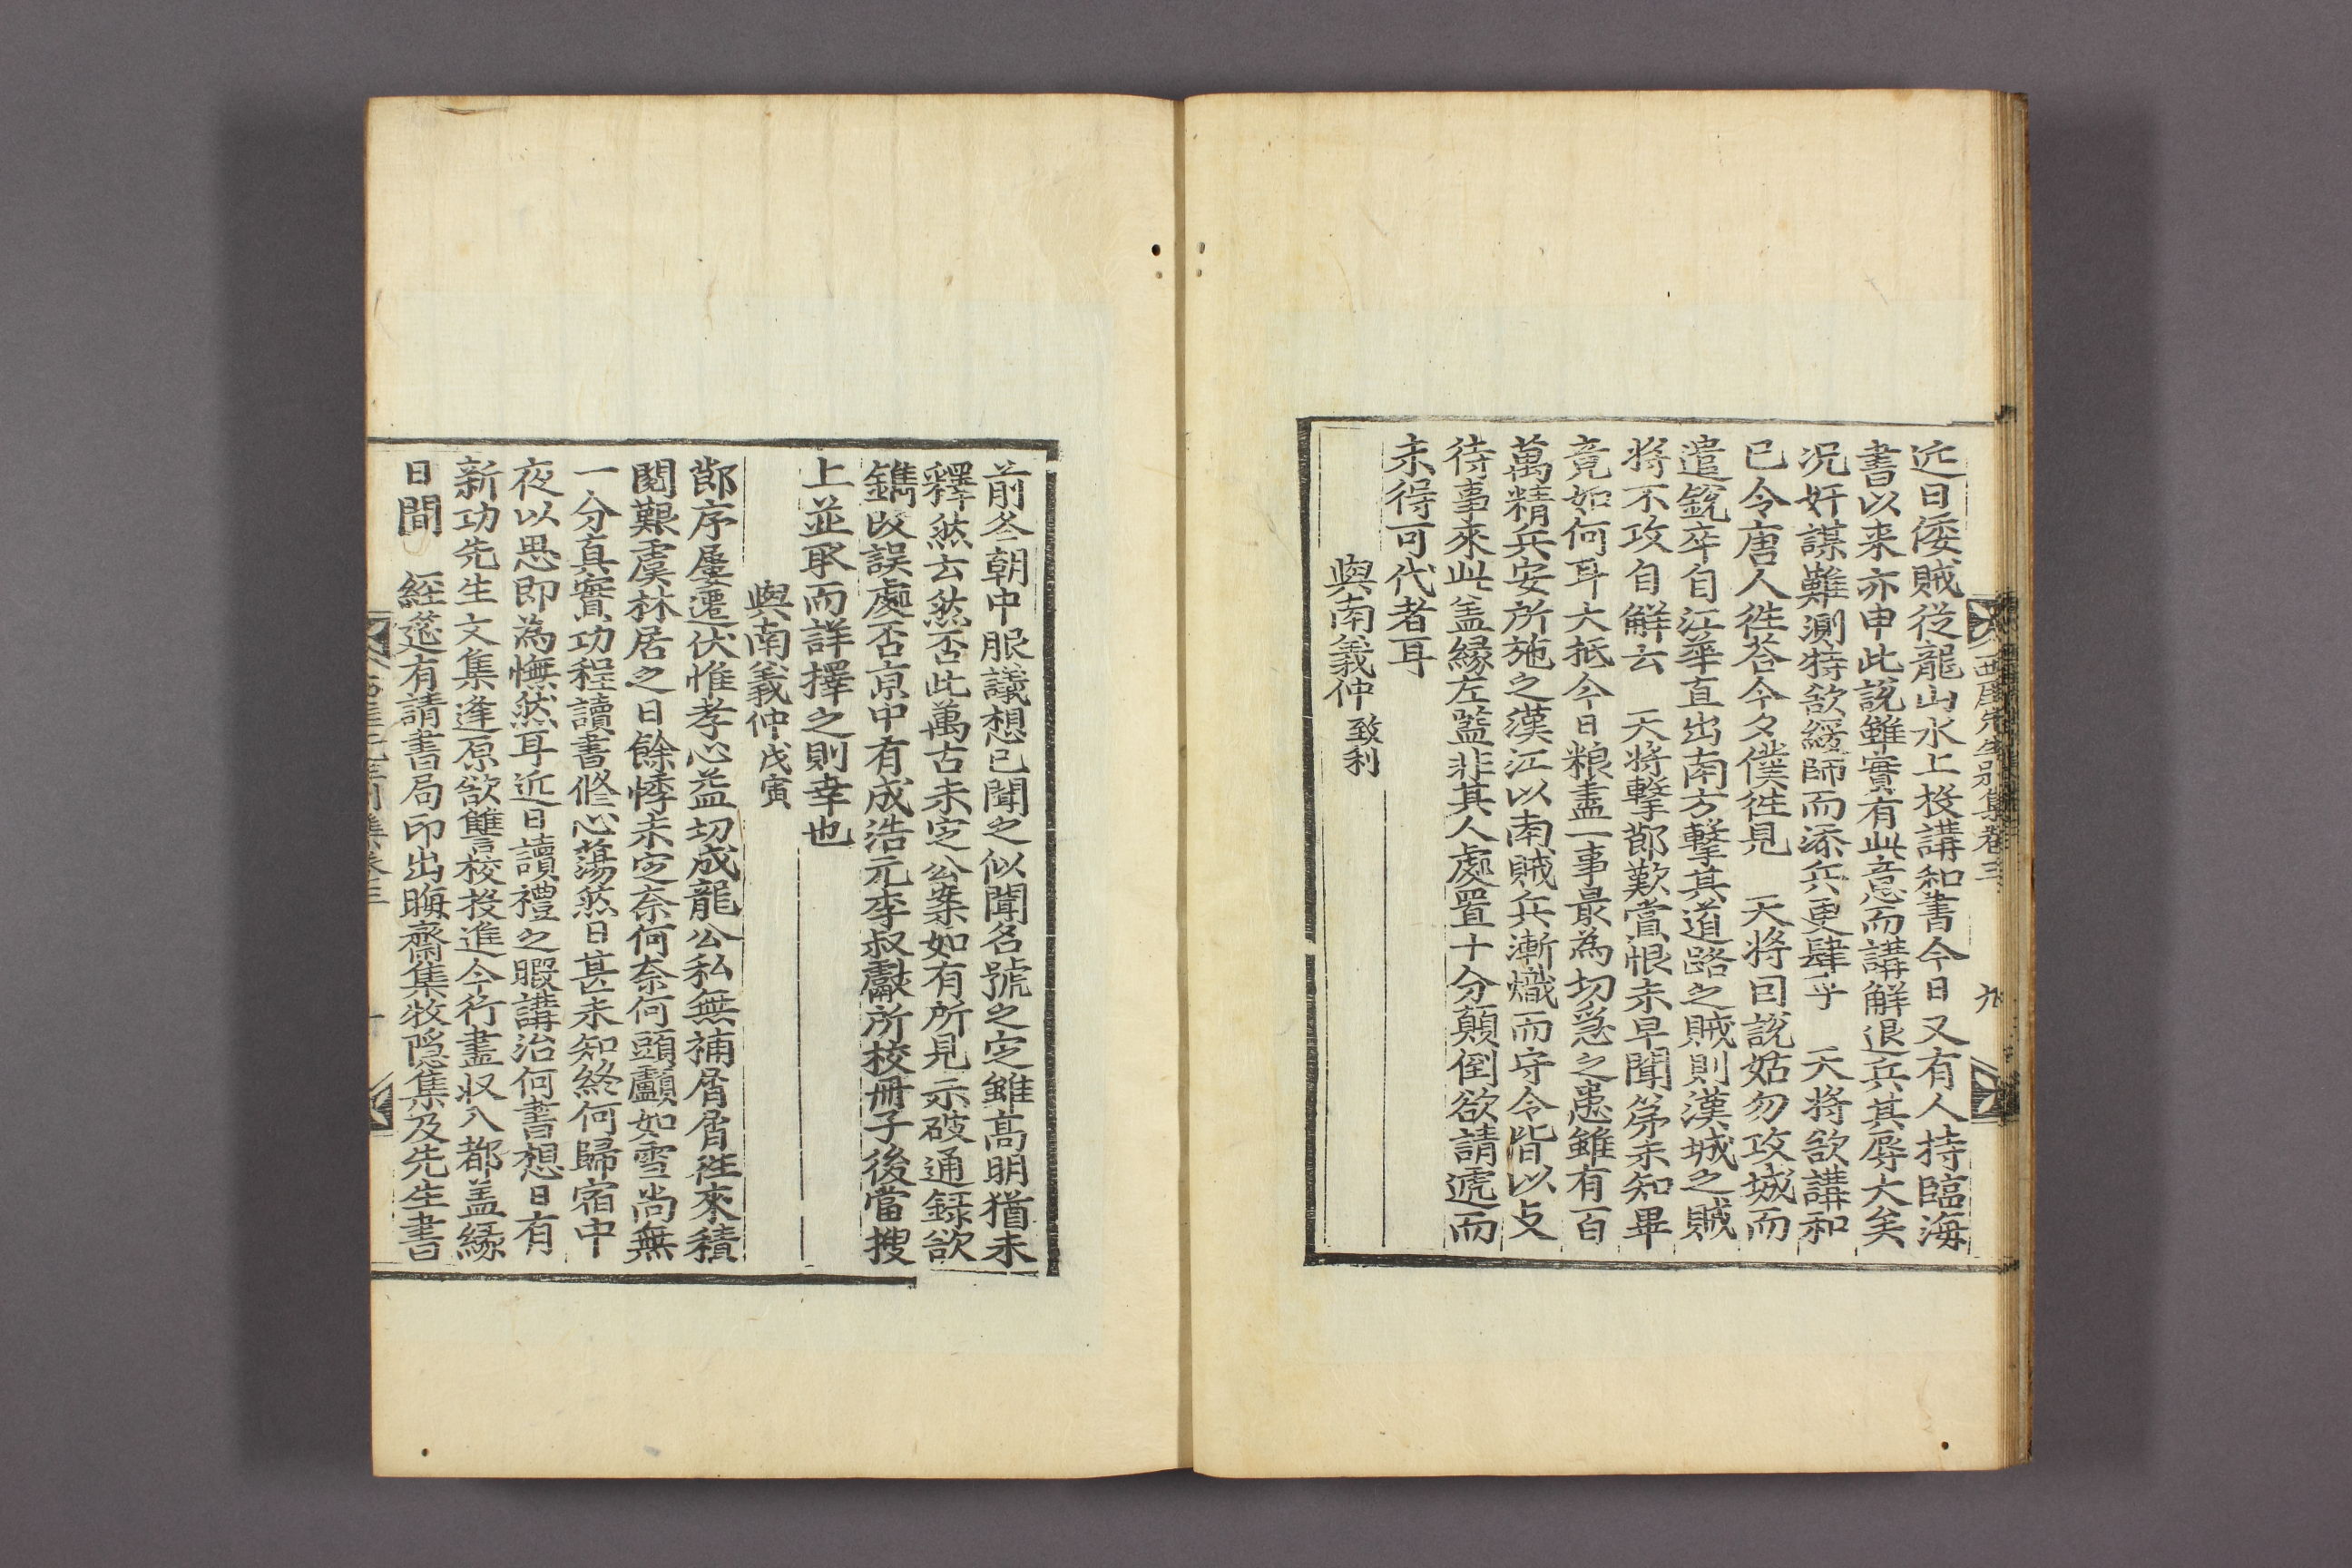 西厓先生別集卷三 九
近日倭賊從龍山水上投講和書今日又有人持臨海
書以来亦申此說雖實有此意而講解退兵其辱大矣
况奸謀難測特欲緩師而添兵更肆乎 天將欲講和
已令唐人徃答今夕僕徃見 天將回說姑勿攻城而
遣銳卒自江華直出南方擊其道路之賊則漢城之賊
將不攻自解云 天將擊節歎賞恨未早聞第未知畢
竟如何耳大抵今日粮盡一事最為切急之患雖有百
萬精兵安所施之漢江以南賊兵漸熾而守令皆以攴
待事來此盖緣左監非其人處置十分顛倒欲請遞而
未得可代者耳
與南義仲 致利
前冬朝中服議想已聞之似聞名號之定雖高明猶未
釋然云然否此萬古未定公案如有所見示破通錄欲
鐫改誤處否京中有成浩元李叔獻所校冊子後當搜
上並取而詳擇之則幸也
與南義仲 戊寅
節序屢遷伏惟孝心益切成龍公私無補屑屑徃來積
閱艱虞林居之日餘悸未定奈何奈何頭顱如雪尚無
一分真實功程讀書修心蕩然日甚未知終何歸宿中
夜以思即為憮然耳近日讀禮之暇講治何書想日有
新功先生文集逢原欲讐校投進今行盡収入都盖緣
日間 經筵有請書局印出晦齋集牧隱集及先生書